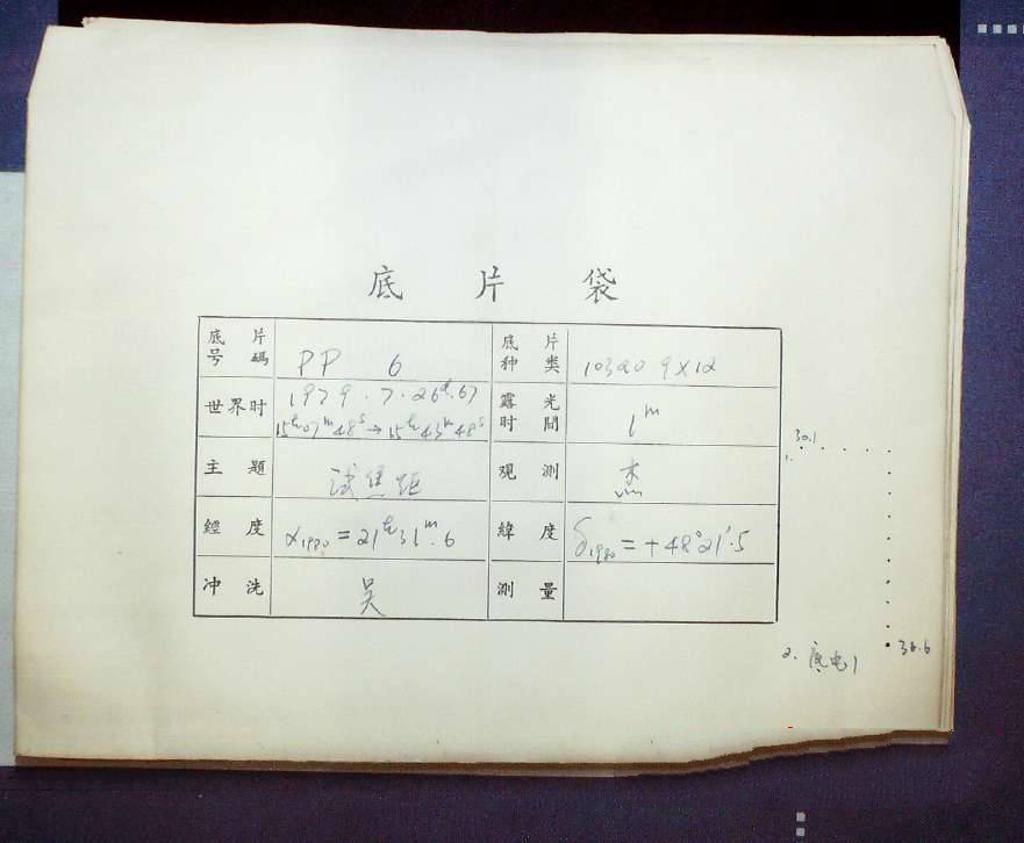 底 片 袋
底 片
号 碼
PP 6
底 片
种 类
103aO 9×12
世界时
1979.7.26ᵈ.67
15ʰ07ᵐ48ˢ→15ʰ43ᵐ48ˢ
露 光
时 間
1ᵐ
主 題
试焦距
观 測
經 度
α₁₉₈₀=21ʰ31ᵐ.6
緯 度
δ₁₉₈₀=+48°21′.5
冲 洗
吴
測 量
30.1
1.
36.6
2.